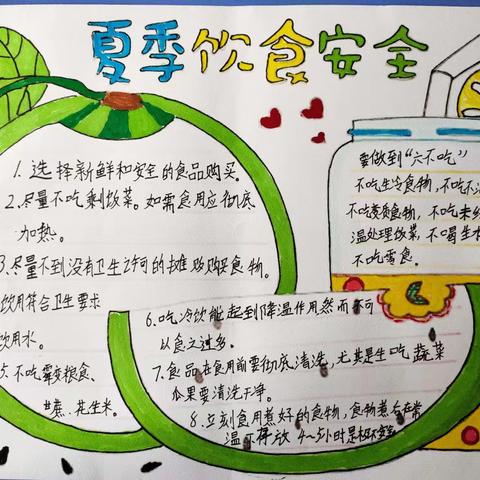 夏季饮食安全
1. 选择新鲜和安全的食品购买。
2. 尽量不吃剩饭菜。如需食用应彻底
加热。
3. 尽量不到没有卫生许可的摊贩购买食物。
饮用符合卫生要求
饮用水。
5. 不吃霉变粮食、
甘蔗、花生米。
6. 吃冷饮能起到降温作用然而不可
以食之过多。
7. 食品在食用前要彻底清洗，尤其是生吃蔬菜
瓜果要清洗干净。
8. 立刻食用煮好的食物，食物煮后在常
温下存放 4~5小时是极不安全
要做到“六不吃”
不吃生冷食物，不吃不
不吃变质食物，不吃未经
温处理饭菜，不喝生水
不吃零食。